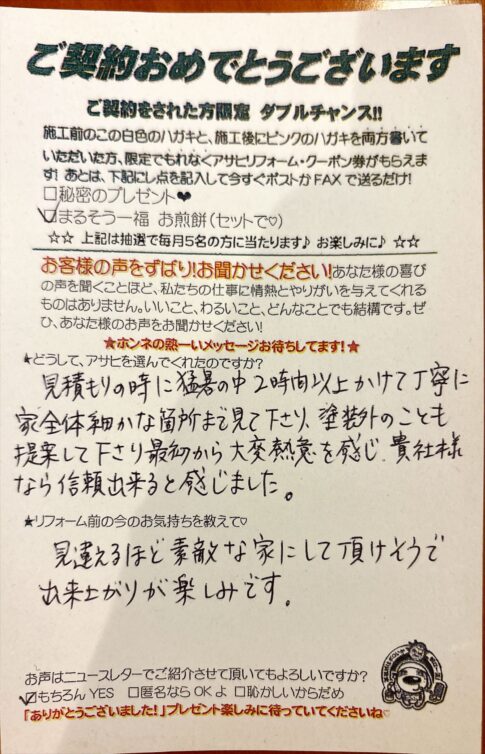 ご契約おめでとうございます
ご契約をされた方限定 ダブルチャンス!!
施工前のこの白色のハガキと、施工後にピンクのハガキを両方書いて
いただいた方、限定でもれなくアサヒリフォーム・クーポン券がもらえま
す! あとは、下記にレ点を記入して今すぐポストかFAXで送るだけ!
□秘密のプレゼント♥
☑まるそう一福 お煎餅(セットで♡)
☆☆ 上記は抽選で毎月5名の方に当たります♪ お楽しみに♪ ☆☆
お客様の声をずばり!お聞かせください!あなた様の喜び
の声を聞くことほど、私たちの仕事に情熱とやりがいを与えてくれる
ものはありません。いいこと、わるいこと、どんなことでも結構です。ぜ
ひ、あなた様のお声をお聞かせください!
★ホンネの熱ーいメッセージお待ちしてます!★
★どうして、アサヒを選んでくれたのですか?
見積もりの時に猛暑の中2時間以上かけて丁寧に
家全体細かな箇所まで見て下さり、塗装外のことも
提案して下さり最初から大変熱意を感じ、貴社様
なら信頼出来ると感じました。
★リフォーム前の今のお気持ちを教えて♡
見違えるほど素敵な家にして頂けそうで
出来上がりが楽しみです。
お声はニュースレターでご紹介させて頂いてもよろしいですか?
☑もちろんYES □匿名ならOKよ □恥かしいからだめ
「ありがとうございました!」プレゼント楽しみに待っていてくださいね♡